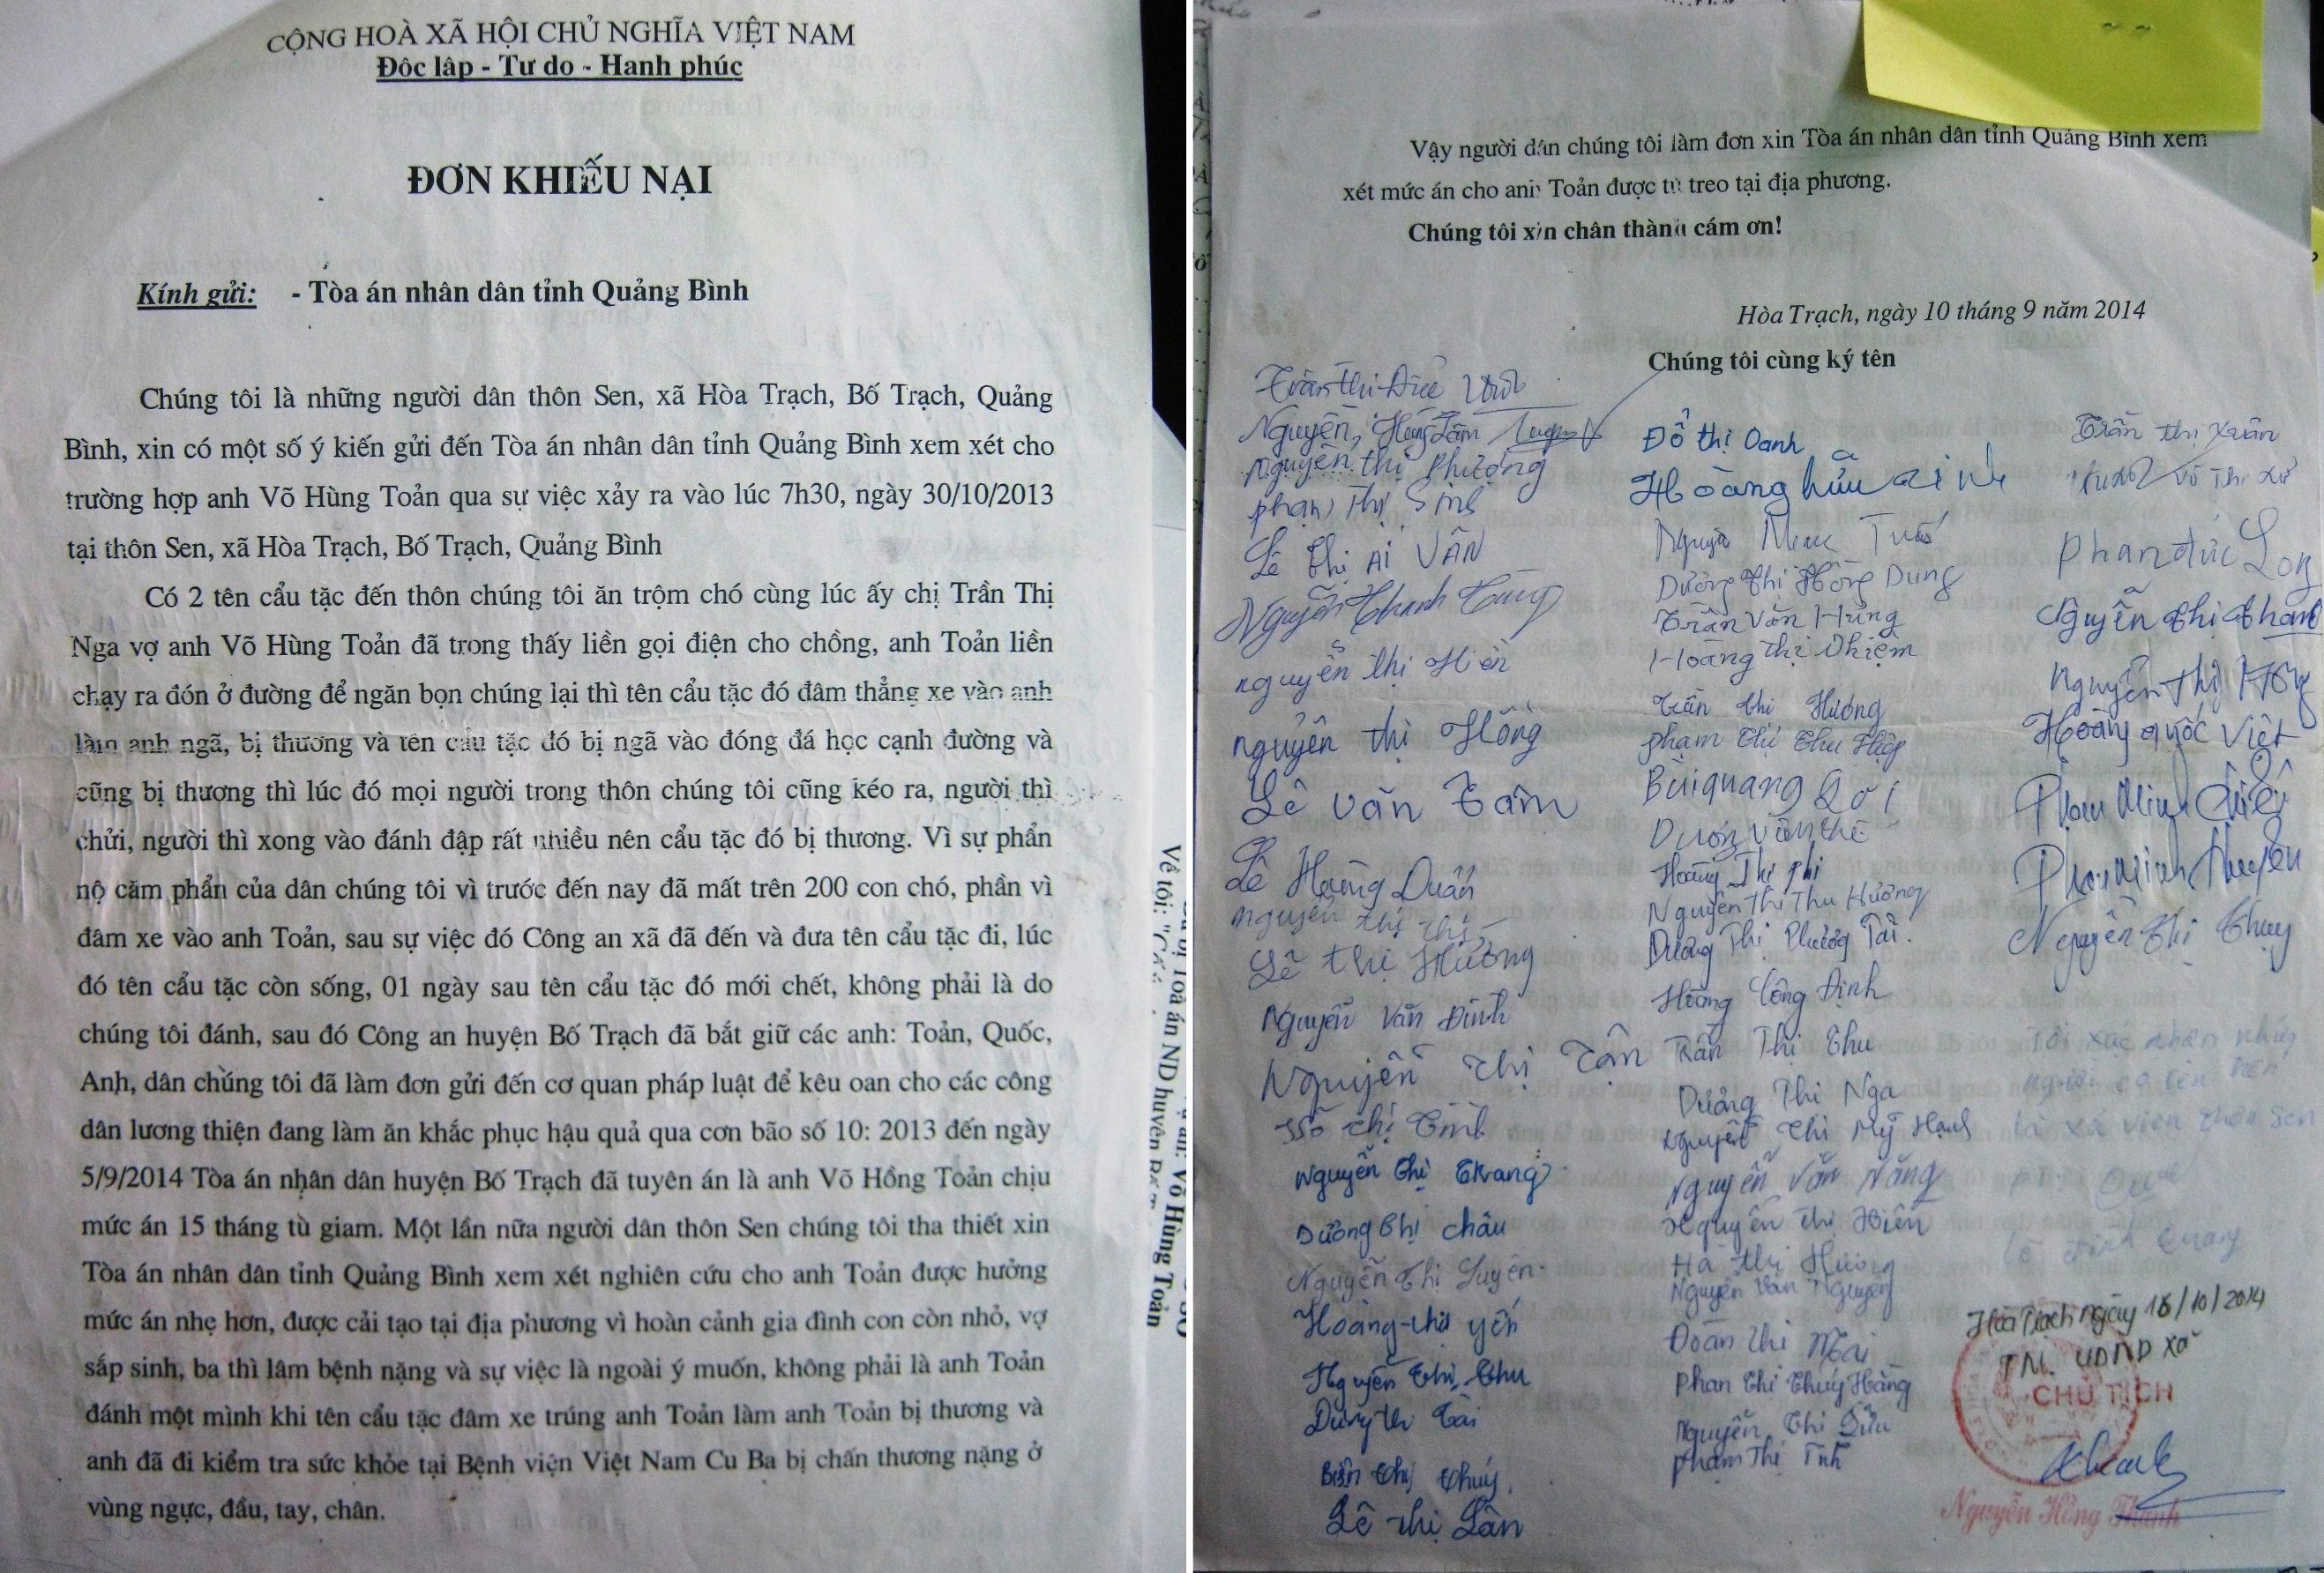 CỘNG HOÀ XÃ HỘI CHỦ NGHĨA VIỆT NAM
Đôc lâp - Tư do - Hanh phúc
ĐƠN KHIẾU NẠI
Kính gửi: - Tòa án nhân dân tỉnh Quảng Bình
Chúng tôi là những người dân thôn Sen, xã Hòa Trạch, Bố Trạch, Quảng
Bình, xin có một số ý kiến gửi đến Tòa án nhân dân tỉnh Quảng Bình xem xét cho
trường hợp anh Võ Hùng Toản qua sự việc xảy ra vào lúc 7h30, ngày 30/10/2013
tại thôn Sen, xã Hòa Trạch, Bố Trạch, Quảng Bình
Có 2 tên cẩu tặc đến thôn chúng tôi ăn trộm chó cùng lúc ấy chị Trần Thị
Nga vợ anh Võ Hùng Toản đã trong thấy liền gọi điện cho chồng, anh Toản liền
chạy ra đón ở đường để ngăn bọn chúng lại thì tên cẩu tặc đó đâm thẳng xe vào anh
làm anh ngã, bị thương và tên cẩu tặc đó bị ngã vào đóng đá học cạnh đường và
cũng bị thương thì lúc đó mọi người trong thôn chúng tôi cũng kéo ra, người thì
chửi, người thì xong vào đánh đập rất nhiều nên cẩu tặc đó bị thương. Vì sự phẩn
nộ căm phẩn của dân chúng tôi vì trước đến nay đã mất trên 200 con chó, phần vì
đâm xe vào anh Toản, sau sự việc đó Công an xã đã đến và đưa tên cẩu tặc đi, lúc
đó tên cẩu tặc còn sống, 01 ngày sau tên cẩu tặc đó mới chết, không phải là do
chúng tôi đánh, sau đó Công an huyện Bố Trạch đã bắt giữ các anh: Toản, Quốc,
Anh, dân chúng tôi đã làm đơn gửi đến cơ quan pháp luật để kêu oan cho các công
dân lương thiện đang làm ăn khắc phục hậu quả qua cơn bão số 10: 2013 đến ngày
5/9/2014 Tòa án nhân dân huyện Bố Trạch đã tuyên án là anh Võ Hồng Toản chịu
mức án 15 tháng tù giam. Một lần nữa người dân thôn Sen chúng tôi tha thiết xin
Tòa án nhân dân tỉnh Quảng Bình xem xét nghiên cứu cho anh Toản được hưởng
mức án nhẹ hơn, được cải tạo tại địa phương vì hoàn cảnh gia đình con còn nhỏ, vợ
sắp sinh, ba thì lâm bệnh nặng và sự việc là ngoài ý muốn, không phải là anh Toản
đánh một mình khi tên cẩu tặc đâm xe trúng anh Toản làm anh Toản bị thương và
anh đã đi kiểm tra sức khỏe tại Bệnh viện Việt Nam Cu Ba bị chấn thương nặng ở
vùng ngực, đầu, tay, chân.
Về tội:
Toà án ND huyện
Võ Hùng Toản
Vậy người dân chúng tôi làm đơn xin Tòa án nhân dân tỉnh Quảng Bình xem
xét mức án cho anh Toản được tù treo tại địa phương.
Chúng tôi xin chân thành cám ơn!
Hòa Trạch, ngày 10 tháng 9 năm 2014
Chúng tôi cùng ký tên
Nguyễn
Nguyễn thị Phượng
phạm Thị
Lê Thị Ái VÂN
Nguyễn Thanh Tùng
nguyễn thị Hiền
nguyễn thị Hồng
Lê Văn Tâm
Lê Hoàng Duẩn
nguyễn thị
Lê thị Hương
Nguyễn Văn Đình
Nguyễn Thị Tận
Võ Thị
Nguyễn Thị Trang
Dương Thị Châu
Nguyễn Thị Luyến
Hoàng thị yến
Nguyễn Thị Thu
Tài
Thị Thúy
Lê Thị Lân
Đỗ thị Oanh
Hoàng hữu
Dương Thị Hồng Dung
Trần Văn Hùng
Hoàng thị Nhiệm
Trần Thị Hương
phạm Thị Thu
Bùi quang
Dương Văn thế
Hoàng Thị
Nguyễn Thị Thu Hương
Dương Thị Phương
Hoàng Công Định
Trần Thị Thu
Dương Thị Nga
Nguyễn Thị Mỹ Hạnh
Nguyễn Văn Năng
Nguyễn Thị Hiền
Hà thị Hương
Nguyễn Văn Nguyên
Đoàn thị Mai
Phan Thị Thúy Hằng
Nguyễn Thị
phạm Thị
Trần thị Xuân
Võ Thị
Phan đức Long
Nguyễn Thị Thanh
Nguyễn Thị
Hoàng quốc Việt
Phạm Minh
Phạm Minh
Nguyễn Thị Thủy
Tôi xác nhận những
người có tên trên
là xã viên thôn Sen
Lê Quang
Hòa Trạch ngày 16/10/2014
TM. UBND xã
CHỦ TỊCH
Nguyễn Hồng Thanh